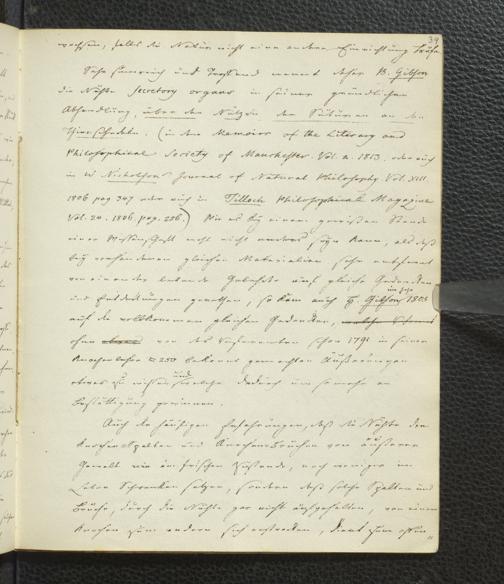 39
wachsen, falls die Natur nicht eine andere Einrichtung träfe.
Sehr sinnreich und treffend nennt daher B. Gibson
die Nähte Secretory organs in seiner gründlichen
Abhandlung, über den Nutzen der Suturen an den
Thierschedeln. (in den Memoirs of the Literary and
Philosophical Society of Manchester. Vol. 2. 1813. oder auch
in W. Nicholson's Journal of Natural Philosophy Vol. XIII.
1806 pag 347 oder auch in Tilloch Philosophical Magazine
Vol. 24. 1806. pag. 226.) Wie es bey einem gewissen Stande
einer Wissenschaft wohl nicht anders seyn kann, als daß
bey vorhandenen gleichen Materialien sehr entfernt
von einander lebende Gelehrte auf gleiche Gedanken
und Entdeckungen gerathen, so kam auch H. Gibson im Jahr 1805
auf die vollkommen gleichen Gedanken,
ohne von des Verfassers schon 1791 in seiner
Knochenlehre § 250 bekannt gemachten Äußerungen
etwas zu wissen, und welche dadurch um so mehr an
Bestättigung gewinnen.
Auch die häufigen Erfahrungen, daß die Nähte den
Knochenspalten und Knochenbrüchen von äußerer
Gewalt wie im frischen Zustande, noch weniger im
Leben Schranken setzen, sondern daß solche Spalten und
Brüche, durch die Nähte gar nicht aufgehalten, von einem
Knochen zum andern sich erstrecken, dient zum offen